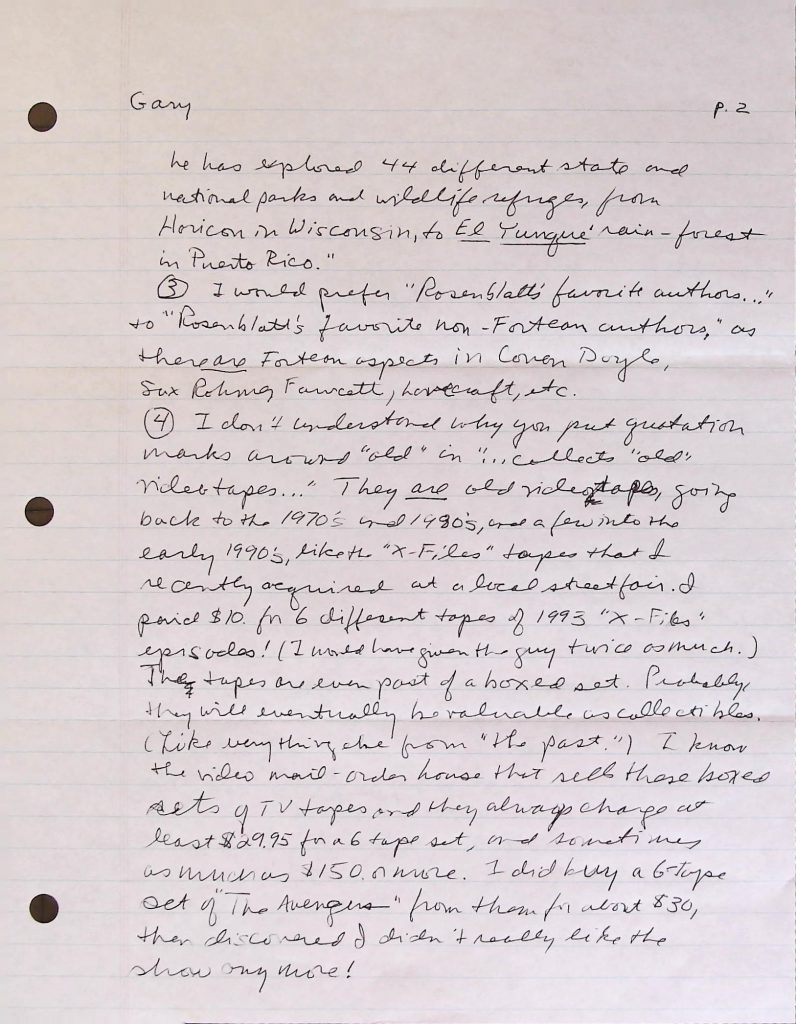 Gary p. 2
he has explored 44 different state and
national parks and wildlife refuges, from
Horicon in Wisconsin, to El Yunque' rain-forest
in Puerto Rico."
③ I would prefer "Rosenblatt's favorite authors..."
to "Rosenblatt's favorite non-Fortean authors," as
there are Fortean aspects in Conan Doyle,
Sax Rohmer, Fawcett, Lovecraft, etc.
④ I don't understand why you put quotation
marks around "old" in "...collects "old"
videotapes..." They are old videotapes, going
back to the 1970's and 1980's, and a few into the
early 1990's, like the "X-Files" tapes that I
recently acquired at a local street fair. I
paid $10. for 6 different tapes of 1993 "X-Files"
episodes! (I would have given the guy twice as much.)
The tapes are even part of a boxed set. Probably,
they will eventually be valuable as collectibles.
(Like everything else from "the past.") I know
the video mail-order house that sells these boxed
sets of TV tapes and they always charge at
least $29.95 for a 6 tape set, and sometimes
as much as $150. or more. I did buy a 6-tape
set of "The Avengers" from them for about $30,
then discovered I didn't really like the
show any more!